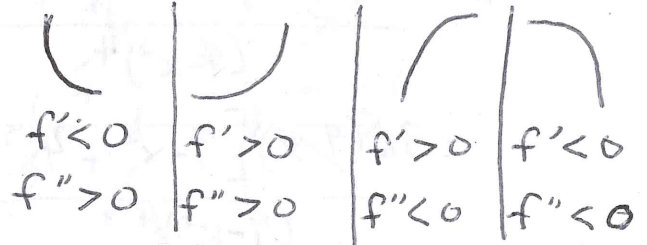 f'<0
f">0
f'>0
f">0
f'>0
f"<0
f'<0
f"<0